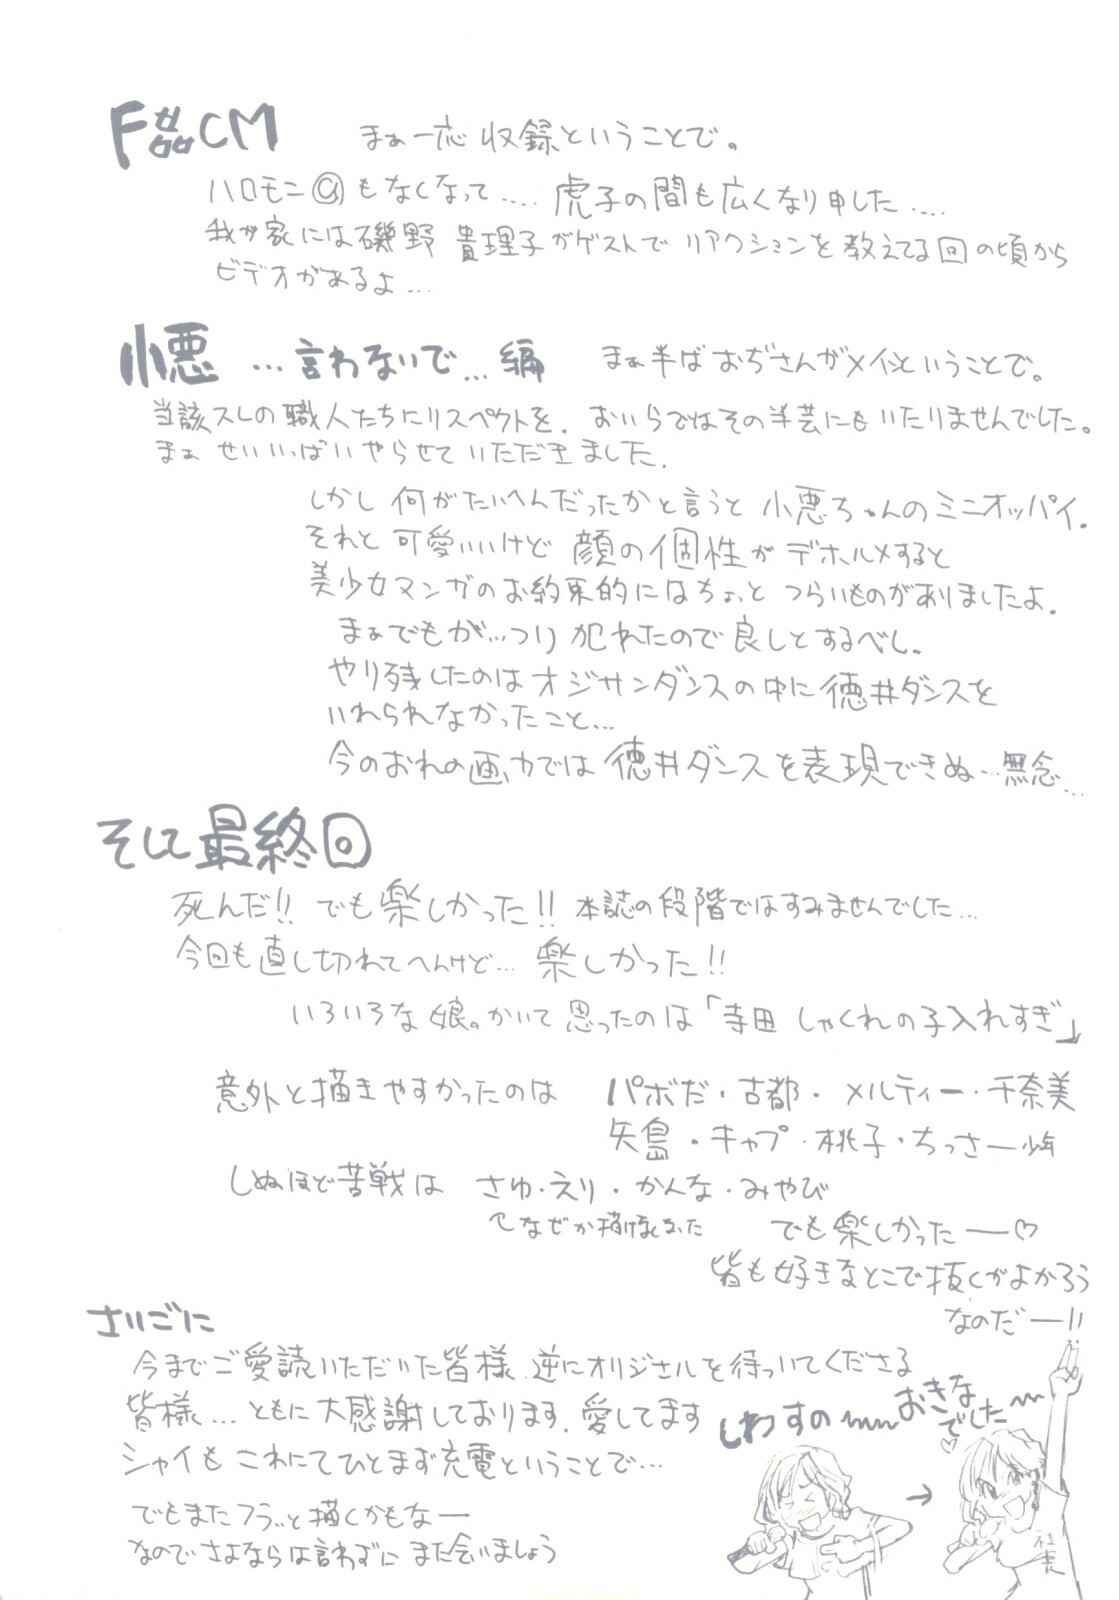 F磊CM まぁ一応収録ということで。
ハロモニ@もなくなって‥‥虎子の間も広くなり申した‥‥
我が家には磯野貴理子がゲストでリアクションを教えてる回の頃から
ビデオがあるよ…
小悪…言わないで…編 まぁ半ばおぢさんがメインということで。
当該スレの職人たちにリスペクトを。おいらではその半芸にもいたりませんでした。
まぁせいいっぱいやらせていただきました。
しかし何がたいへんだったかと言うと小悪ちゃんのミニオッパイ。
それと可愛いいけど顔の個性がデホルメすると
美少女マンガのお約束的にはちょっとつらいものがありましたよ。
まぁでもが…っつり犯れたので良しとするべし。
やり残したのはオジサンダンスの中に徳井ダンスを
いれられなかったこと…
今のおれの画力では徳井ダンスを表現できぬ…無念…
そして最終回
死んだ!! でも楽しかった!! 本誌の段階ではすみませんでした…
今回も直し切れてへんけど… 楽しかった!!
いろいろな娘。かいて思ったのは「寺田 しゃくれの子入れすぎ」
意外と描きやすかったのは パボだ・古都・メルティー・千奈美
矢島・キャプ・桃子・ちっさー少年
しぬほど苦戦は さゆ・えり・かんな・みやび
でも楽しかった―♡
皆も好きなとこで抜くがよかろう
なのだ―!!
さいごに
今までご愛読いただいた皆様、逆にオリジナルを待っいてくださる
皆様…ともに大感謝しております。愛してます
シャイもこれにてひとまず充電ということで…
でもまたフラッと描くかもなー
なのでさよならは言わずにまた会いましょう
しわすの
おきな
でした
→